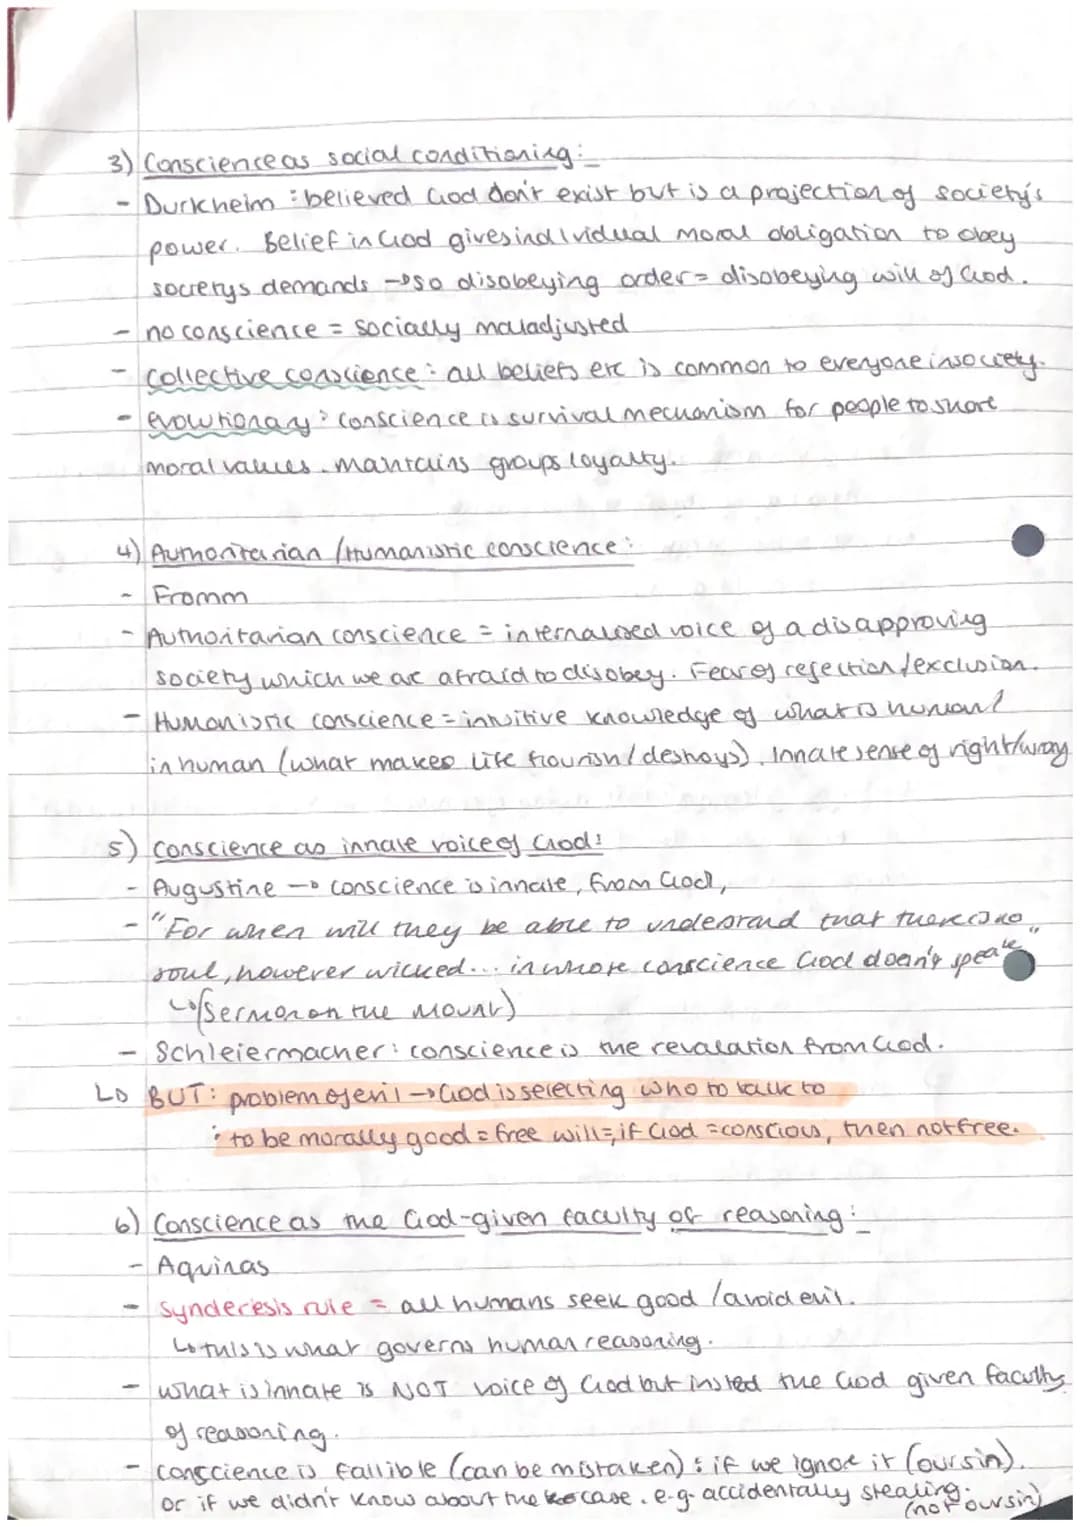 3) Conscience as social conditioning:
- Durkheim : believed God don't exist but is a projection of society's
power. Belief in God gives individual moral obligation to obey
societys demands → so disobeying order = disobeying will of God.
- no conscience = socially maladjusted
- collective conscience : all beliefs etc is common to everyone in society.
- evolutionary : conscience is survival mechanism for people to share
moral values. maintains groups loyalty.
4) Authoritarian / Humanistic conscience :
- Fromm
- Authoritarian conscience = internalised voice of a disapproving
society which we are afraid to disobey. Fear of rejection / exclusion.
- Humanistic conscience = intuitive knowledge of what is human /
inhuman (what makes life flourish / destroys). Innate sense of right/wrong
5) Conscience as innate voice of God:
- Augustine → conscience is innate, from God,
- "For when will they be able to understand that there is no
soul, however wicked... in whose conscience God doesn't speak"
↳ (Sermon on the Mount)
- Schleiermacher : conscience is the revalation from God.
↳ BUT : problem of evil → God is selecting who to talk to
: to be morally good = free will =, if God = conscious, then not free.
6) Conscience as the God-given faculty of reasoning :
- Aquinas
- synderesis rule = all humans seek good / avoid evil.
↳ this is what governs human reasoning.
- what is innate is NOT voice of God but insted the God given faculty
of reasoning.
- conscience is fallible (can be mistaken) : if we ignore it (our sin).
or if we didn't know about the case. e.g. accidentally stealing.
(not our sin)